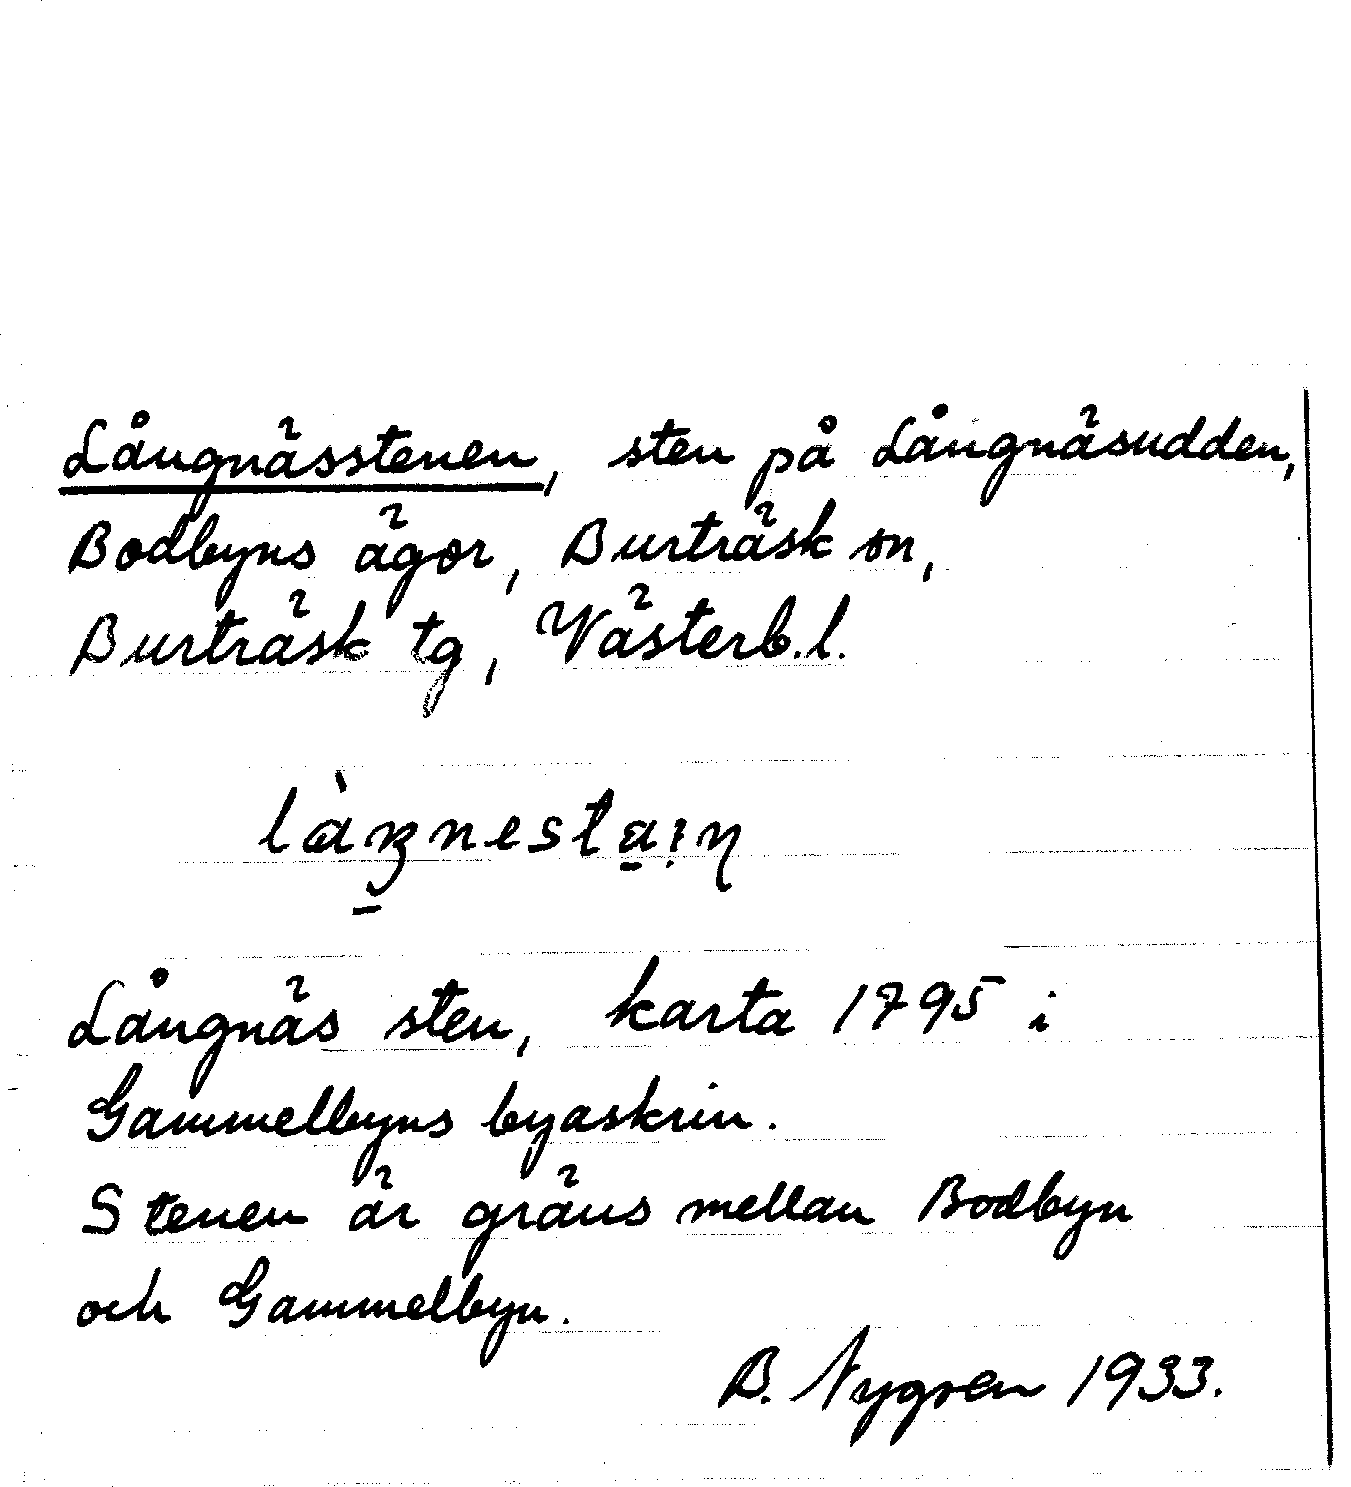 Långnässtenen, sten på Långnäsudden,
Bodbyns ägor, Burträsk sn,
Burträsk tg, Västerb.l.
Långnäs sten, karta 1795 i
Gammelbyns byaskrin.
Stenen är gräns mellan Bodbyn
och Gammelbyn.
B. Nygren 1933.